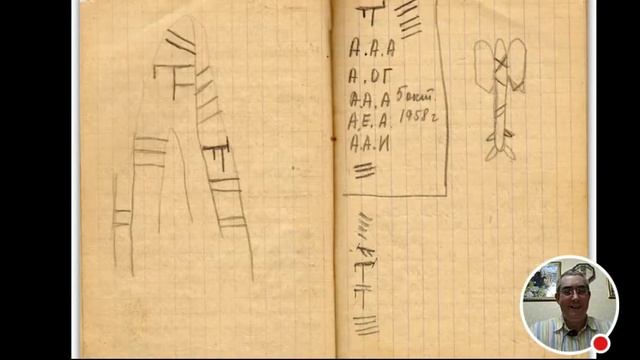 А.А.А
А.ОГ
А.А.А 5 окт.
А.Е.А. 1958 г
А.А.И